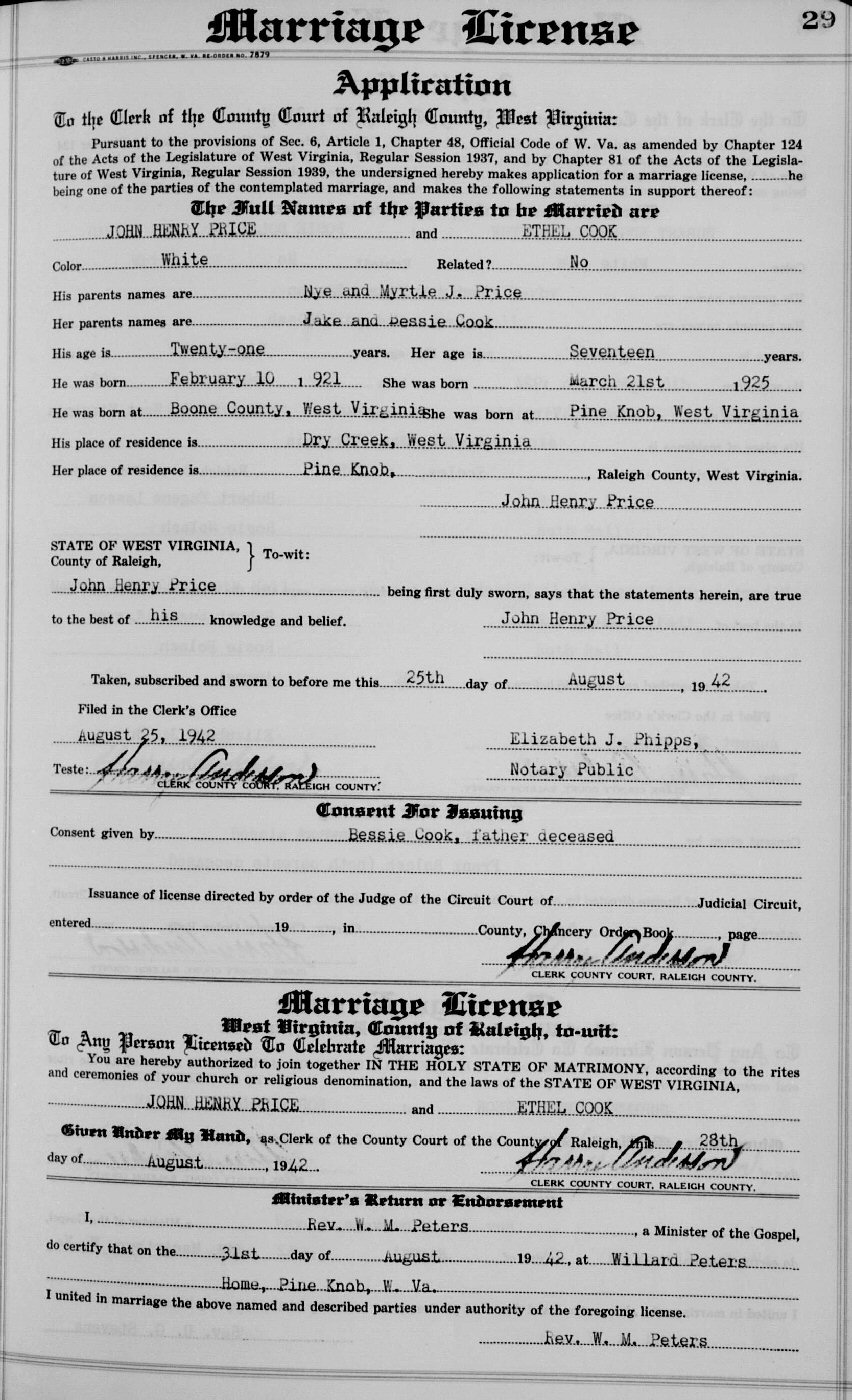 Marriage License
29
CASTO & HARRIS INC., SPENCER, W. VA. RE-ORDER NO. 7879
Application
To the Clerk of the County Court of Raleigh County, West Virginia:
Pursuant to the provisions of Sec. 6, Article 1, Chapter 48, Official Code of W. Va. as amended by Chapter 124
of the Acts of the Legislature of West Virginia, Regular Session 1937, and by Chapter 81 of the Acts of the Legisla-
ture of West Virginia, Regular Session 1939, the undersigned hereby makes application for a marriage license, ..........he
being one of the parties of the contemplated marriage, and makes the following statements in support thereof:
The Full Names of the Parties to be Married are
JOHN HENRY PRICE and ETHEL COOK
Color White Related? No
His parents names are Nye and Myrtle J. Price
Her parents names are Jake and Bessie Cook
His age is Twenty-one years. Her age is Seventeen years.
He was born February 10 1921 She was born March 21st 1925
He was born at Boone County, West Virginia She was born at Pine Knob, West Virginia
His place of residence is Dry Creek, West Virginia
Her place of residence is Pine Knob, , Raleigh County, West Virginia.
John Henry Price
STATE OF WEST VIRGINIA,
County of Raleigh, } To-wit:
John Henry Price being first duly sworn, says that the statements herein, are true
to the best of his knowledge and belief. John Henry Price
Taken, subscribed and sworn to before me this 25th day of August, 1942.
Filed in the Clerk's Office
August 25, 1942 Elizabeth J. Phipps,
Teste: Anderson Notary Public
CLERK COUNTY COURT, RALEIGH COUNTY.
Consent For Issuing
Consent given by Bessie Cook, father deceased
Issuance of license directed by order of the Judge of the Circuit Court of Judicial Circuit,
entered 19 , in County, Chancery Order Book , page
Anderson
CLERK COUNTY COURT, RALEIGH COUNTY.
Marriage License
West Virginia, County of Raleigh, to-wit:
To Any Person Licensed To Celebrate Marriages:
You are hereby authorized to join together IN THE HOLY STATE OF MATRIMONY, according to the rites
and ceremonies of your church or religious denomination, and the laws of the STATE OF WEST VIRGINIA,
JOHN HENRY PRICE and ETHEL COOK
Given Under My Hand, as Clerk of the County Court of the County of Raleigh, this 28th
day of August, 1942. Anderson
CLERK COUNTY COURT, RALEIGH COUNTY.
Minister's Return or Endorsement
I, Rev. W. M. Peters, a Minister of the Gospel,
do certify that on the 31st day of August 1942, at Willard Peters
Home, Pine Knob, W. Va.
I united in marriage the above named and described parties under authority of the foregoing license.
Rev. W. M. Peters